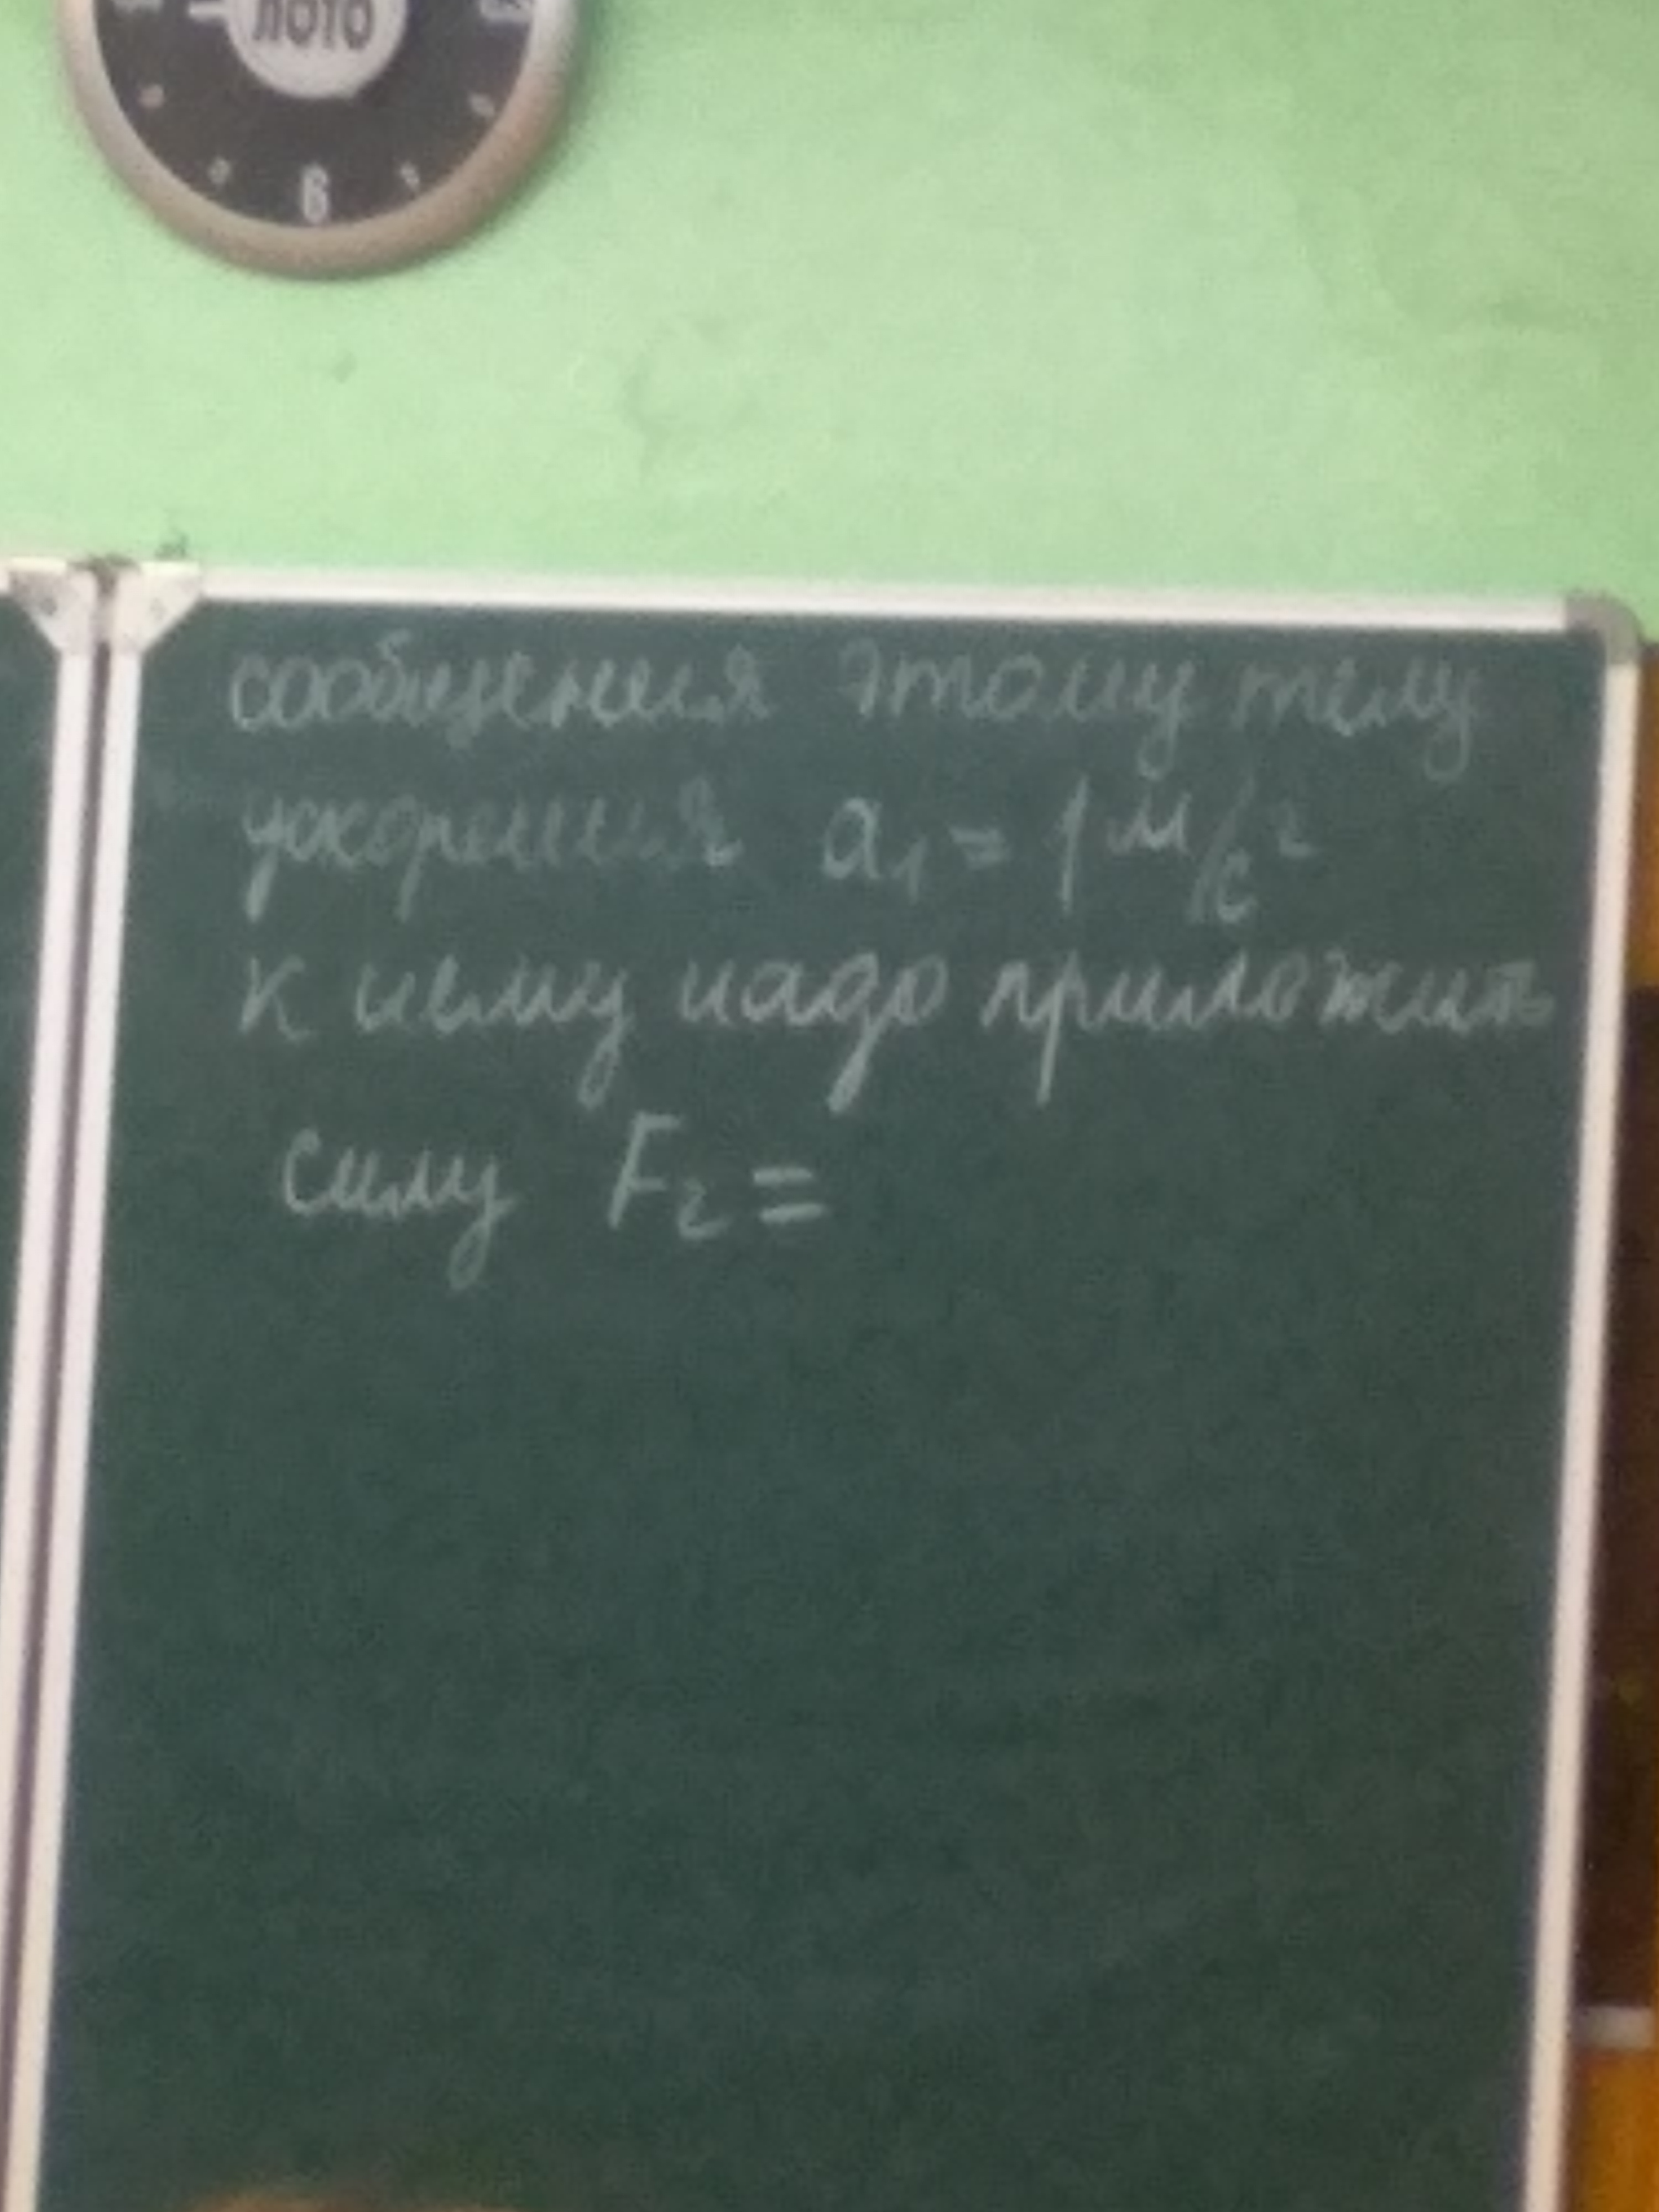 ЛОТО
6
сообщения этому телу
ускорения a₁ = 1 м/с²
к нему надо приложить
силу F₂ =